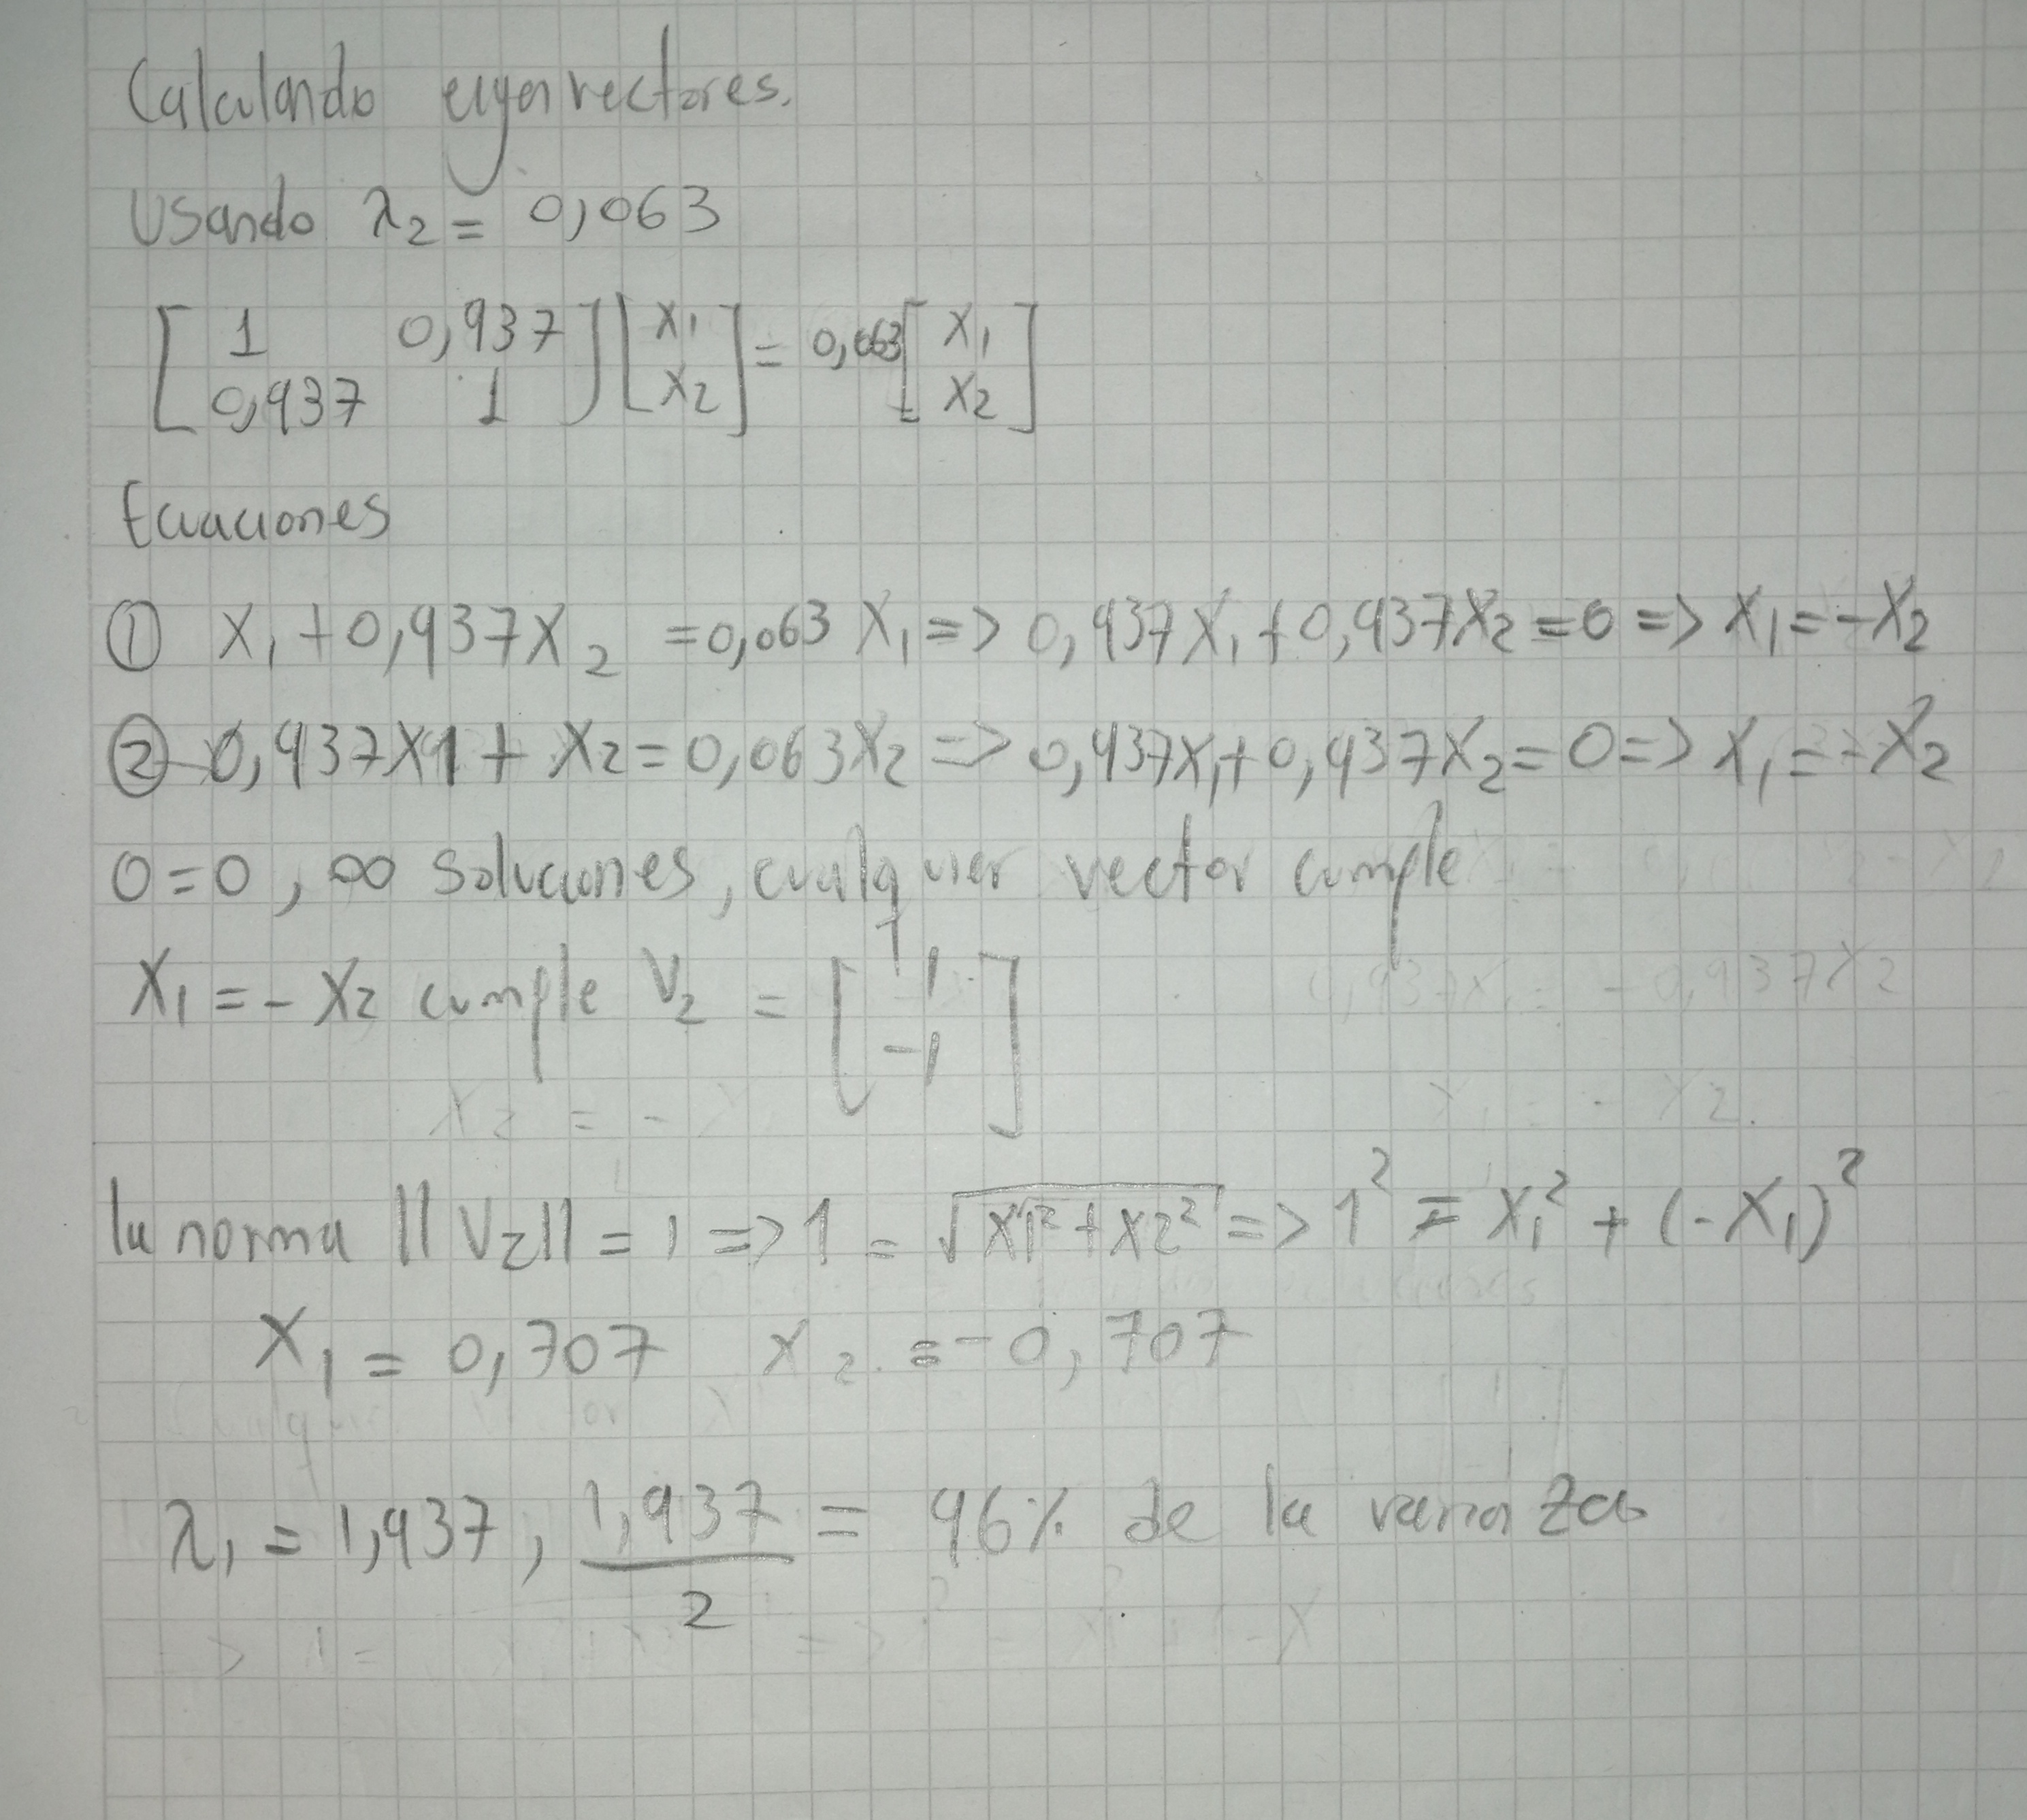 Calculando eigenvectores.
Usando λ2 = 0,063
[1 0,937; 0,937 1] [x1; x2] = 0,063 [x1; x2]
Ecuaciones
① x1 + 0,937x2 = 0,063 x1 => 0,937x1 + 0,937x2 = 0 => x1 = -x2
② 0,937x1 + x2 = 0,063x2 => 0,937x1 + 0,937x2 = 0 => x1 = -x2
0=0, ∞ soluciones, cualquier vector cumple
x1 = -x2 cumple V2 = [1; -1]
la norma ||V2|| = 1 => 1 = √x1² + x2² => 1² = x1² + (-x1)²
x1 = 0,707 x2 = -0,707
λ1 = 1,937, 1,937/2 = 96% de la varianza